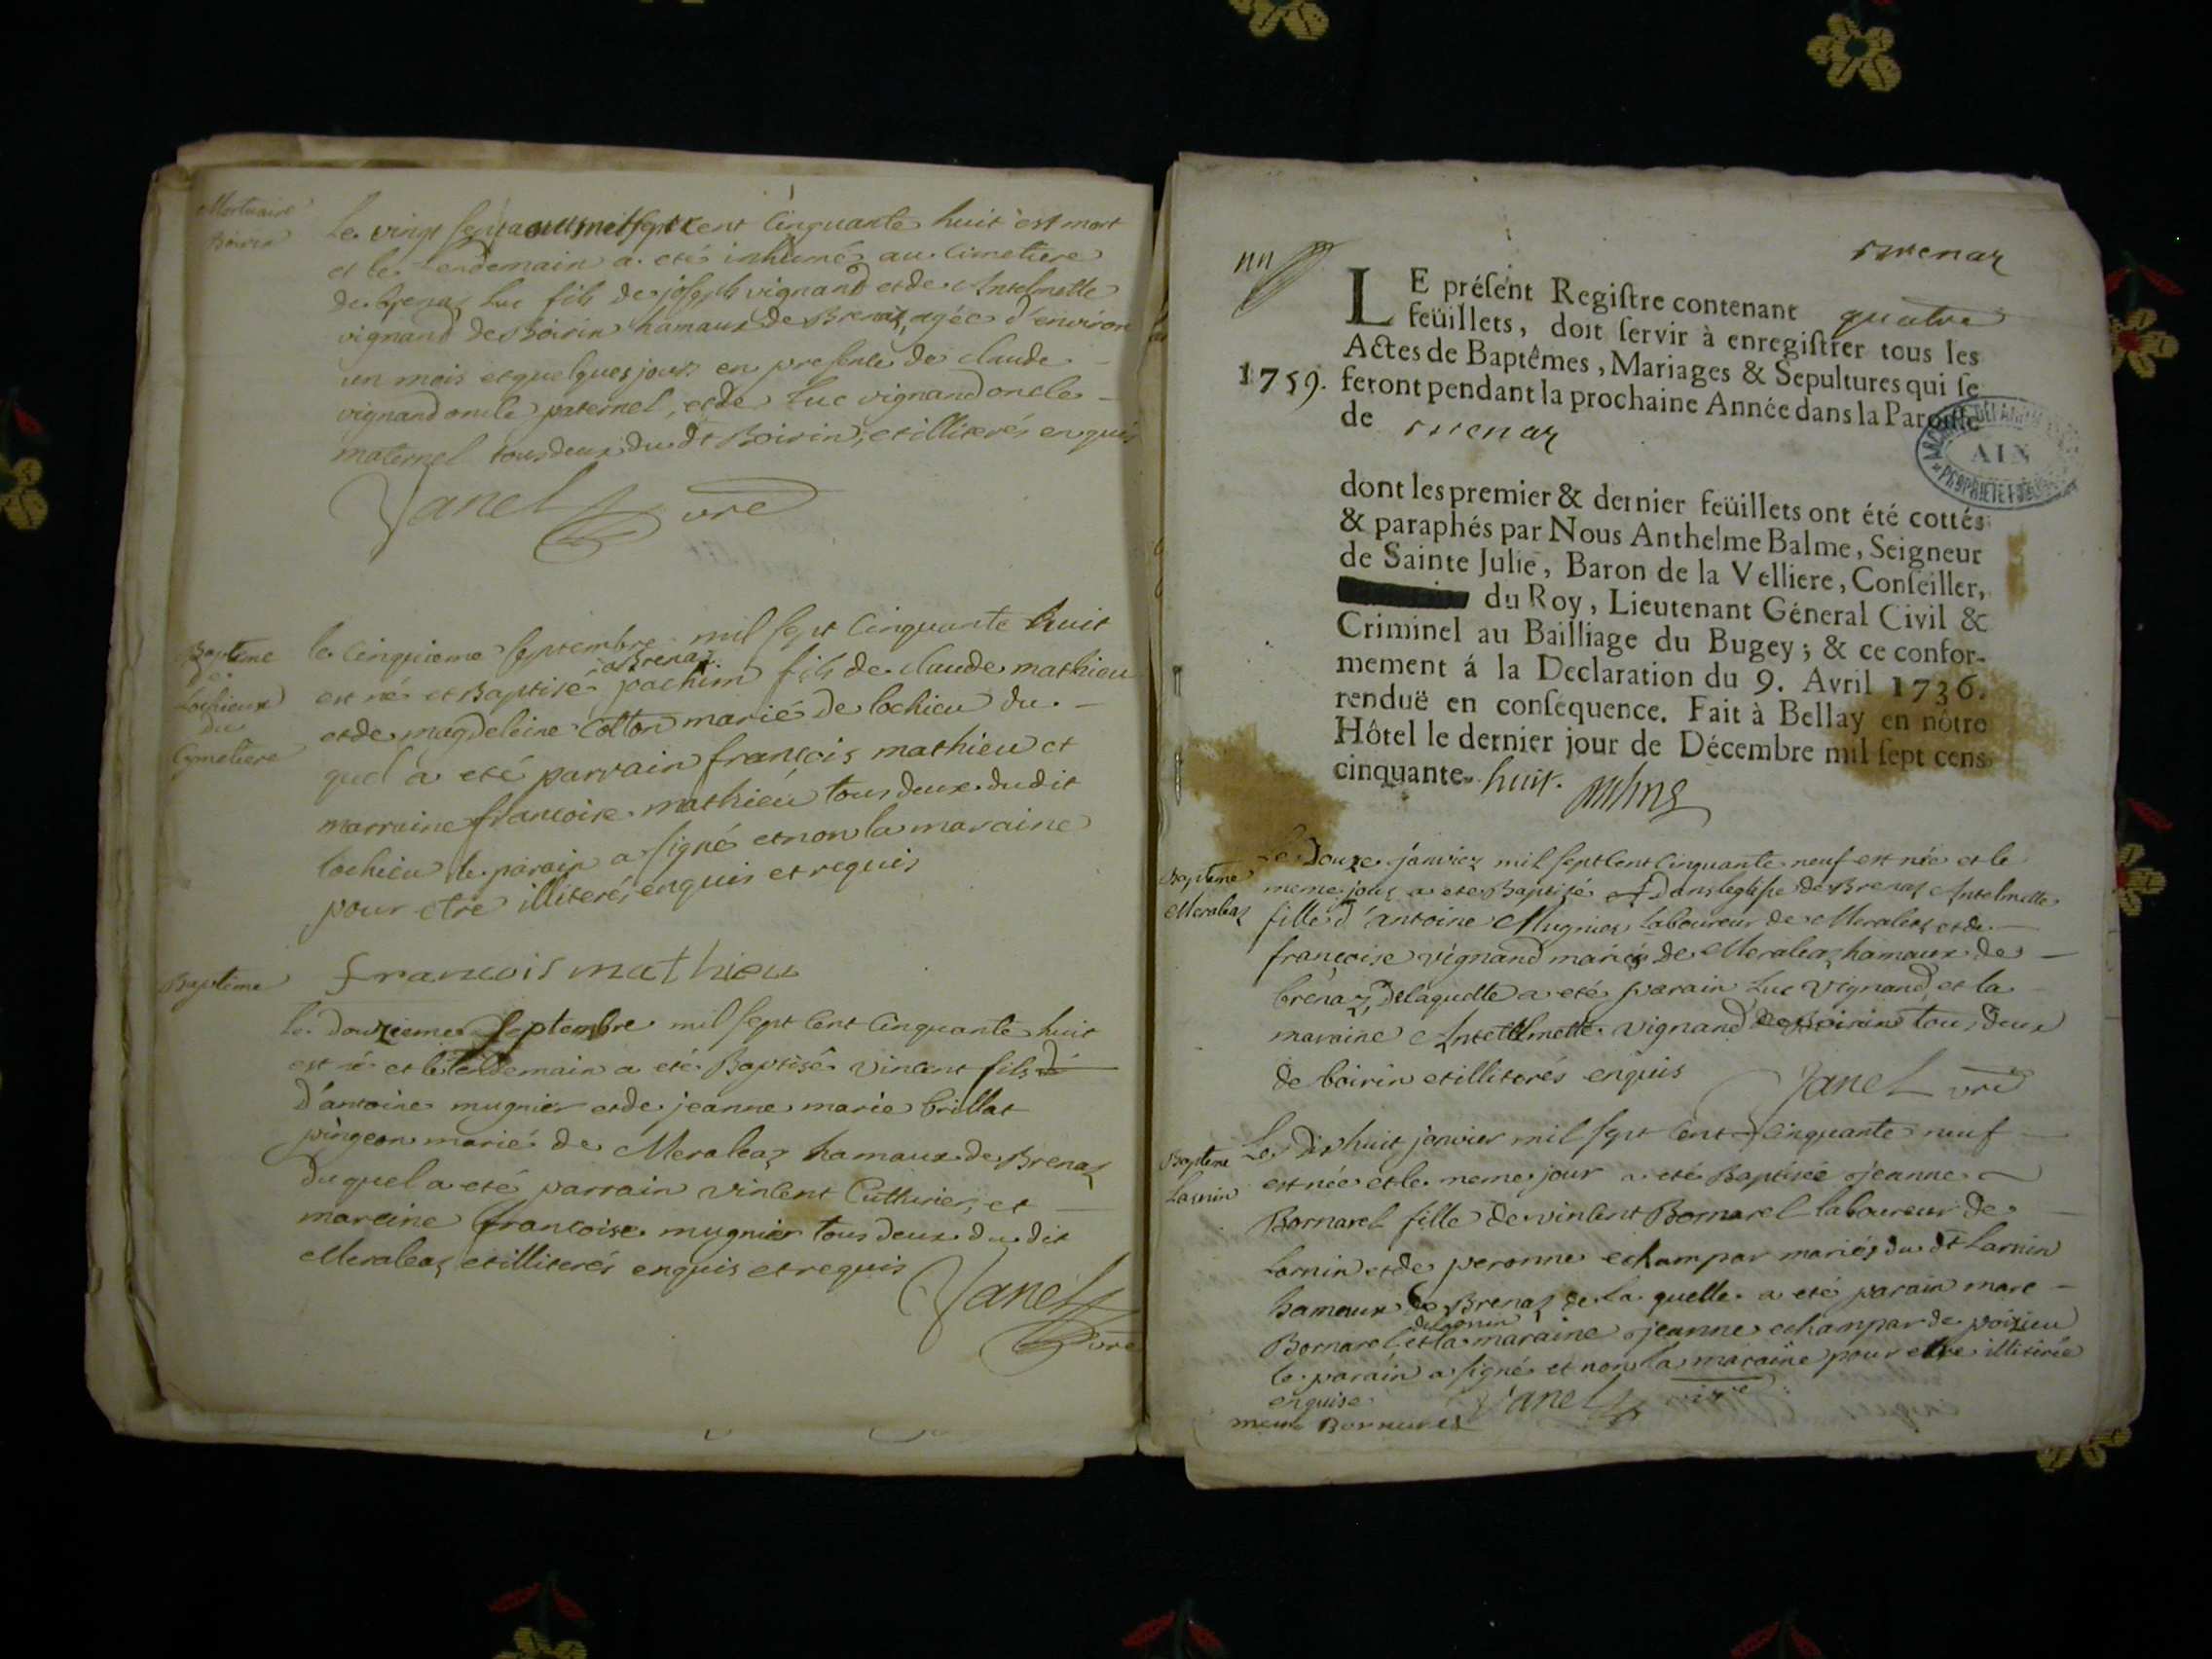 Mortuaire
Boirin
Le vingt sept aoust mil sept cent cinquante huit est mort
et le lendemain a eté inhumé au cimetiere
de brenaz Luc fils de joseph vignand et de Antelmette
vignand de Boirin hamaux de Brenaz, agée d'environ
un mois et quelques jours en presence de claude
vignand oncle paternel, et de Luc vignand oncle
maternel tous deux du dt Boirin, et illiterés enquis
Janel vre
Baptême
de
Lochieux
du
Cymetiere
le cinquieme septembre mil sept cinquante huit
a Brenaz
est né et Baptisé joachim fils de claude mathieu
et de magdeleine Cotton marié de lochieu du
quel a eté parrain françois mathieu et
marraine francoise mathieu tous deux dudit
lochieu le parain a signé et non la maraine
pour etre illiterés enquis et requis
francois mathieu
Baptême
le douzieme septembre mil sept cent cinquante huit
est né et le lendemain a eté Baptisé vincent fils
d'antoine mugnier et de jeanne marie brillat
pingeon marié de Meraleaz hamaux de Brenaz
duquel a eté parrain vincent Cutturier, et
maraine francoise mugnier tous deux du dit
Meraleaz et illiterés enquis et requis
Janel
vre
Brenaz
LE préſent Regiſtre contenant quatre
feüillets, doit ſervir à enregiſtrer tous les
Actes de Baptêmes, Mariages & Sepultures qui ſe
1759. feront pendant la prochaine Année dans la Paroiſſe
de Brenaz
AIN
dont les premier & dernier feüillets ont été cottés
& paraphés par Nous Anthelme Balme, Seigneur
de Sainte Julie, Baron de la Velliere, Conſeiller,
du Roy, Lieutenant Géneral Civil &
Criminel au Bailliage du Bugey; & ce confor-
mement á la Declaration du 9. Avril 1736.
renduë en conſequence. Fait à Bellay en nôtre
Hôtel le dernier jour de Décembre mil ſept cens
cinquante-huit.
Baptême
Meraleaz
Le Douze janvier mil sept cent cinquante neuf est née et le
meme jour a ete Baptisé dans leglise de Brenaz Antelmette
fille d'antoine Mugnier Laboureur de Meraleaz et de
françoise vignand mariés de Meraleaz hamaux de
brenaz, Delaquelle a eté parain Luc vignand et la
maraine Antelmette vignand de Boirin tous deux
de boirin et illiterés enquis
Janel vre
Baptême
Larnin
Le Dix huit janvier mil sept cent cinquante neuf
est née et le meme jour a eté Baptisée jeanne
Bornarel fille de vincent Bornarel laboureur de
Larnin et de peronne echampar mariés du dt Larnin
hameaux de Brenaz de la quelle a eté parain marc
de Larnin
Bornarel et la maraine jeanne echampar de poizieu
le parain a signé et non la maraine pour etre illiterée
enquise
Janel vire